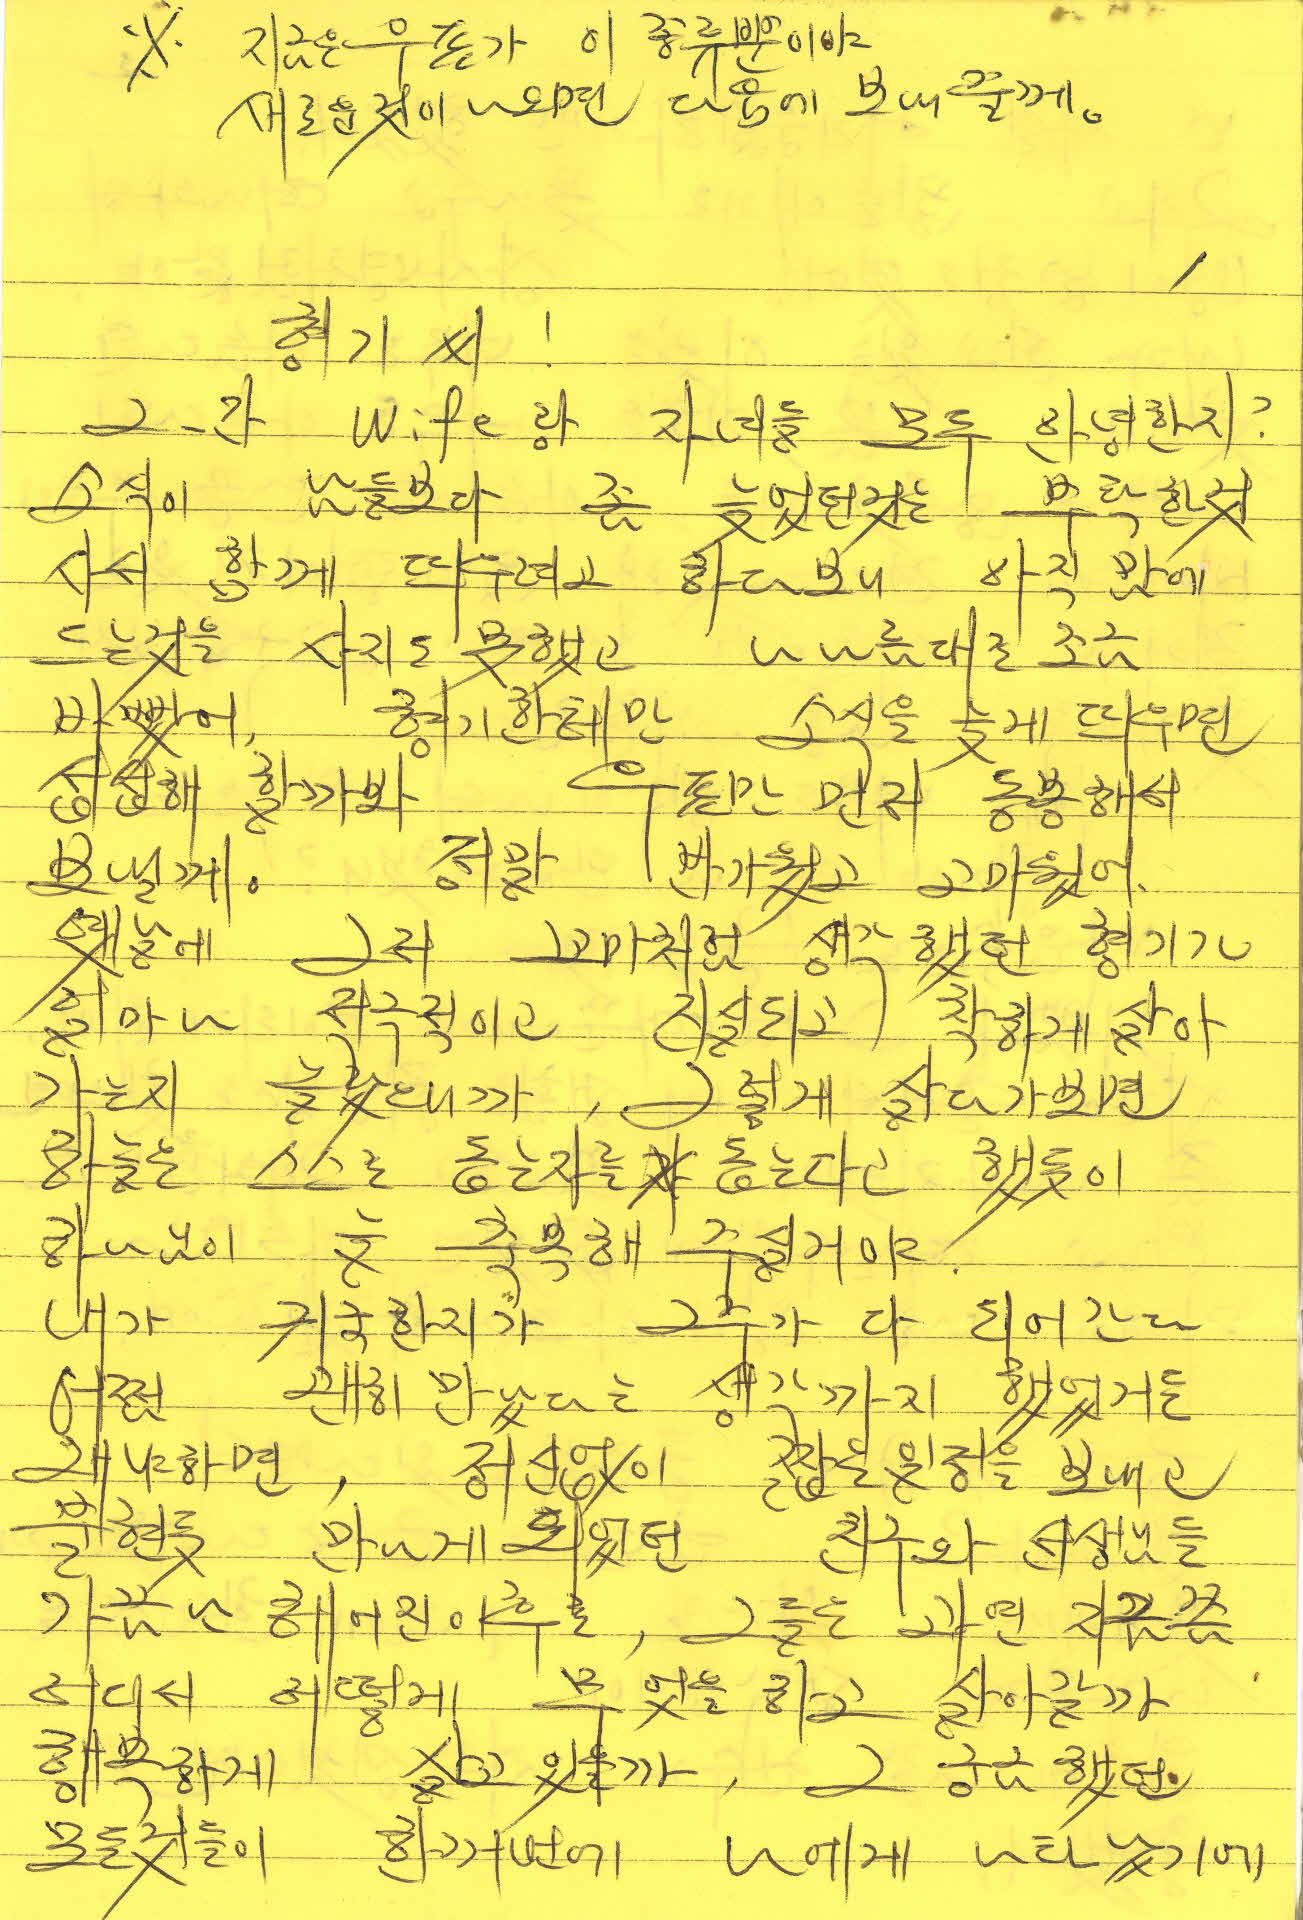 ※ 지금은 우표가 이 종류뿐이야
새로운것이 나오면 다음에 보내줄께.
형기 씨!
그간 Wife랑 자녀들 모두 안녕한지?
소식이 남들보다 좀 늦었던것는 부탁한것
사서 함께 띄우려고 하다보니 아직 맘에
드는것을 사지도 못했고 나나름대로 조금
바빴어, 형기한테만 소식을 늦게 띄우면
섭섭해 할까봐 우표만 먼저 동봉해서
보낼께. 정말 반가웠고 고마웠어.
옛날에 그저 꼬마처럼 생각했던 형기가
얼마나 적극적이고 진실되고 착하게 살아
가는지 놀랐다니까, 그렇게 살다가보면
하늘은 스스로 돕는자를 돕는다고 했듯이
하나님이 늘 축복해 주실거야.
내가 귀국한지가 2주가 다 되어간다
어쩜 괜히 만났다는 생각까지 했었거든
왜냐하면, 정신없이 짧은일정을 보내고
불현듯 만나게 되었던 친구와 선생님들
가끔난 헤어진이후로, 그들은 과연 지금쯤
어디서 어떻게 무엇을 하고 살아갈까
행복하게 살고 있을까, 그 궁금했던
모든것들이 한꺼번에 나에게 나타났기에